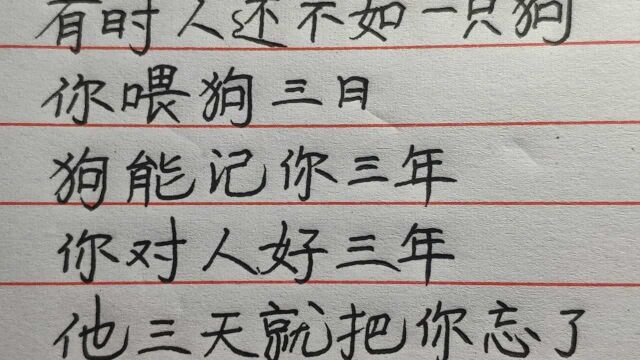 有时人还不如一只狗
你喂狗三日
狗能记你三年
你对人好三年
他三天就把你忘了